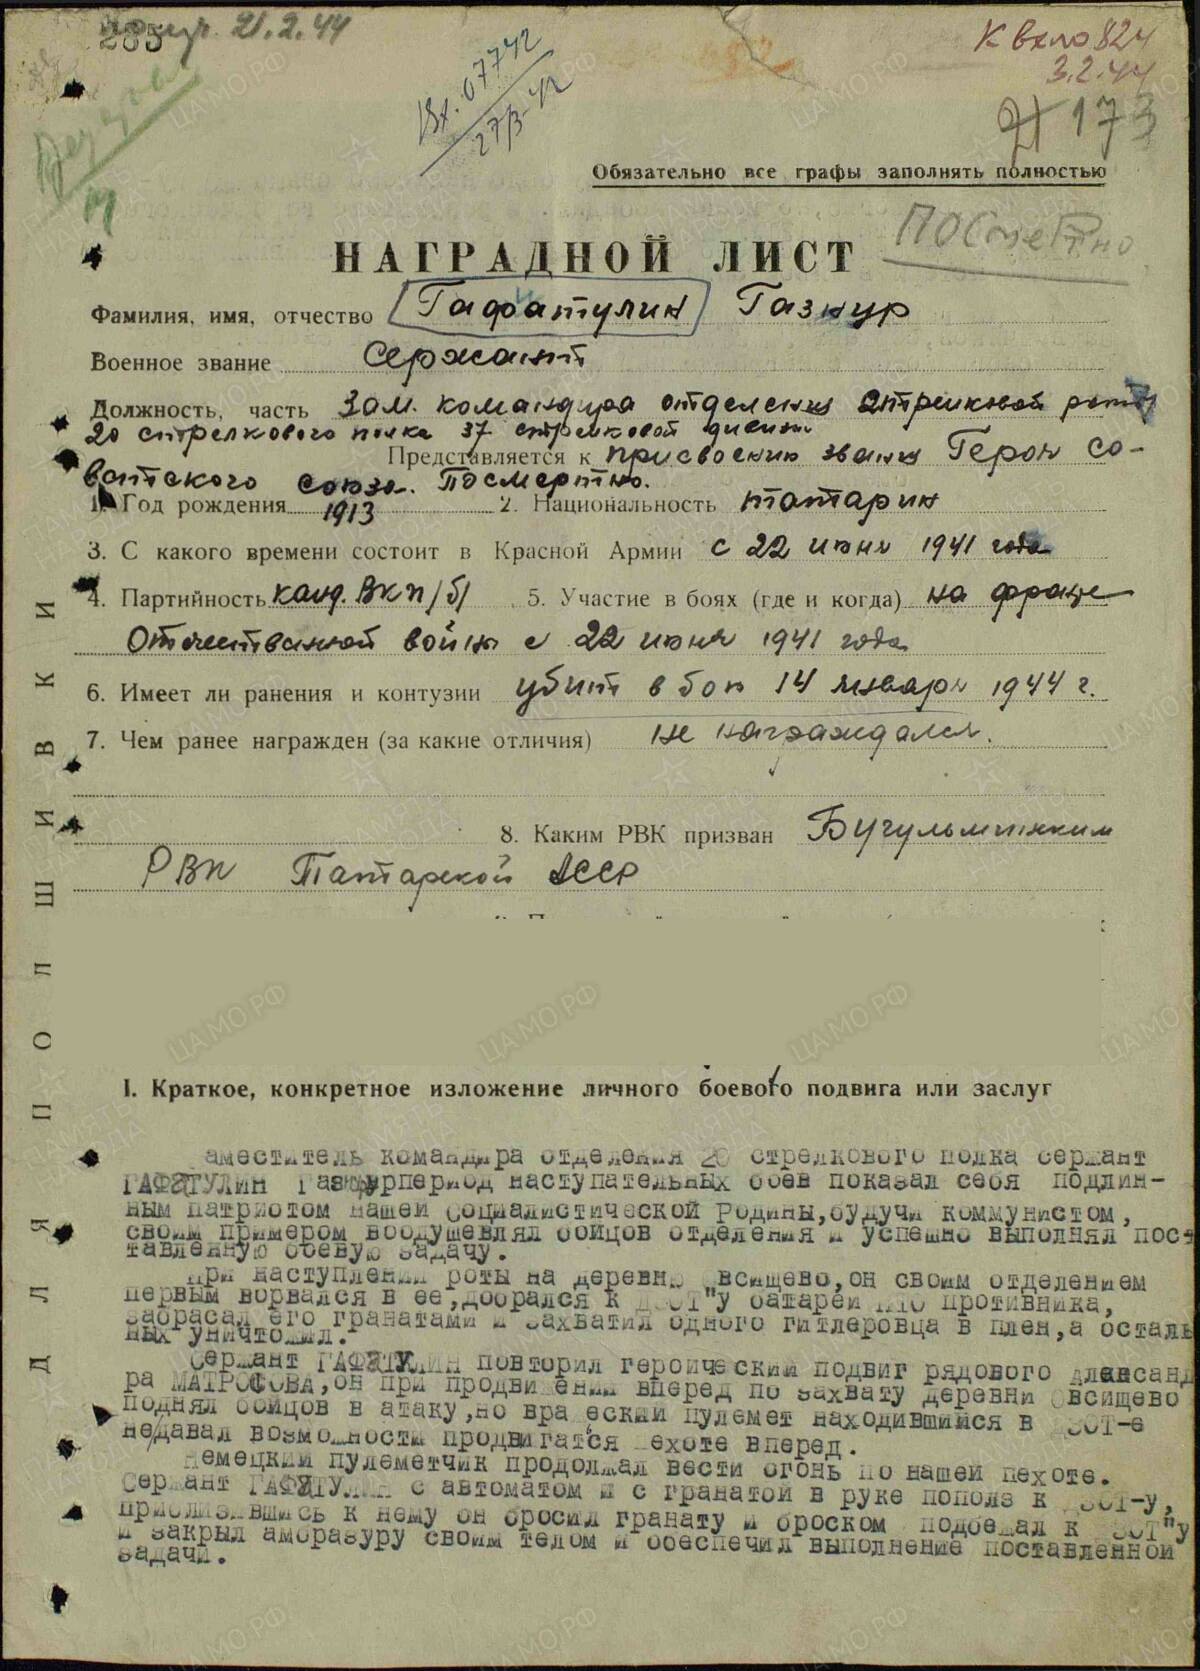 285
21.2.44
Вх. 0774г
27/3-4г
К вх № 824
3.2.44
173
Обязательно все графы заполнять полностью
посмертно
НАГРАДНОЙ ЛИСТ
Фамилия, имя, отчество Гафатулин Газнур
Военное звание Сержант
Должность, часть Зам. командира отделения стрелковой роты
20 стрелкового полка 37 стрелковой дивизии
Представляется к присвоению звания Героя Со-
ветского Союза. Посмертно.
1. Год рождения 1913 2. Национальность татарин
3. С какого времени состоит в Красной Армии с 22 июня 1941 года
4. Партийность канд. ВКП/б/ 5. Участие в боях (где и когда) на фронте
Отечественной войны с 22 июня 1941 года
6. Имеет ли ранения и контузии убит в бою 14 января 1944 г.
7. Чем ранее награжден (за какие отличия) не награждался.
8. Каким РВК призван Бугульминским
РВК Татарской АССР
ДЛЯ ПОДШИВКИ
I. Краткое, конкретное изложение личного боевого подвига или заслуг
аместитель командира отделения 20 стрелкового полка сержант
ГАФАТУЛИН Газнурпериод наступательных боев показал себя подлин-
ным патриотом нашей Социалистической Родины, будучи коммунистом,
своим примером воодушевлял бойцов отделения и успешно выполнял пос-
тавленную боевую задачу.
При наступлении роты на деревню Овсищево, он своим отделением
первым ворвался в ее, добрался к ДЗОТ"у батареи ПТО противника,
забрасал его гранатами и захватил одного гитлеровца в плен, а осталь
ных уничтожил.
Сержант ГАФАТУЛИН повторил героический подвиг рядового Александ
ра МАТРОСОВА, он при продвижении вперед по захвату деревни Овсищево
поднял бойцов в атаку, но вражеский пулемет находившийся в ДЗОТ-е
недавал возможности продвигатся пехоте вперед.
Немецкий пулеметчик продолжал вести огонь по нашей пехоте.
Сержант ГАФАТУЛИН с автоматом и с гранатой в руке пополз к ДЗОТ-у,
приблизившись к нему он бросил гранату и броском подбежал к ДЗОТ"у
и закрыл амбразуру своим телом и обеспечил выполнение поставленной
задачи.